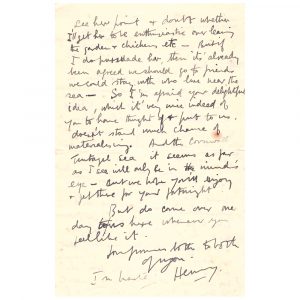 see her point & doubt whether
I'll get her to be enthusiastic over leaving
the garden & chickens, etc — But if
I do persuade her, then it's already
been agreed we should go to friends
we could stay with who live near the
sea — So I'm afraid your delightful
idea, which it's very nice indeed of
you to have thought of & put to us,
doesn't stand much chance of
materialising. And the Cornwall
Tintagel sea it seems as far
as I see will only be in the mind's
eye — But we hope you'll enjoy
& get there for your fortnight
But do come over one
day here whenever you
feel like it.
both to both
of you.
Henry.